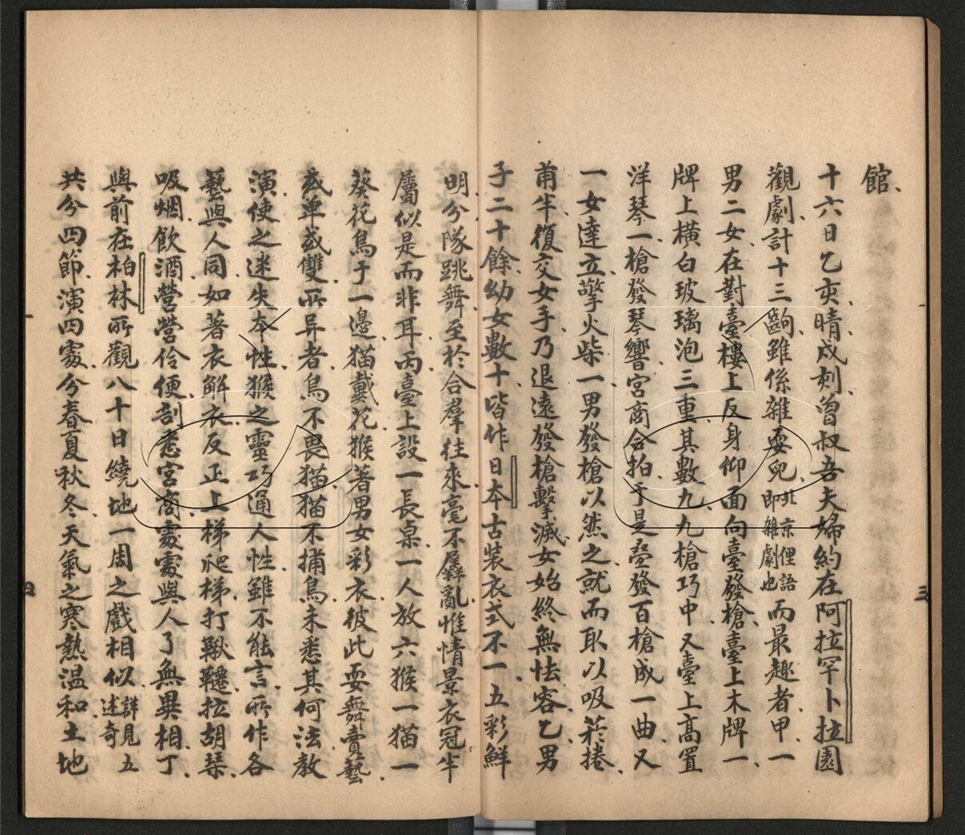 館
十六日乙亥晴戌刻曾叔吾夫婦約在阿拉罕卜拉園
觀劇計十三齣雖係雜耍兒北京俚語即雜劇也而最趣者甲一
男二女在對臺樓上反身仰面向臺發槍臺上木牌一
牌上橫白玻璃泡三重其數九九槍巧中又臺上高置
洋琴一槍發琴響宮商合拍于是疊發百槍成一曲又
一女達立擎火柴一男發槍以然之就而取以吸菸捲
甫半復交女手乃退遠發槍擊滅女始終無怯容乙男
子二十餘幼女數十皆作日本古裝衣式不一五彩鮮
明分隊跳舞至於合羣往來毫不羼亂惟情景衣冠半
屬似是而非耳丙臺上設一長桌一人放六猴一猫一
葵花鳥于一邊猫戴花猴著男女彩衣彼此耍舞賣藝
或單或雙所异者鳥不畏猫猫不捕鳥未悉其何法教
演使之迷失本性猴之靈巧通人性雖不能言所作各
藝與人同如著衣解衣反正上梯爬梯打鞦韆拉胡琴
吸烟飲酒營營伶便剖悉宮商處處與人了無異相丁
與前在柏林所觀八十日繞地一周之戲相似詳見五述奇
共分四節演四處分春夏秋冬天氣之寒熱温和土地
三
四